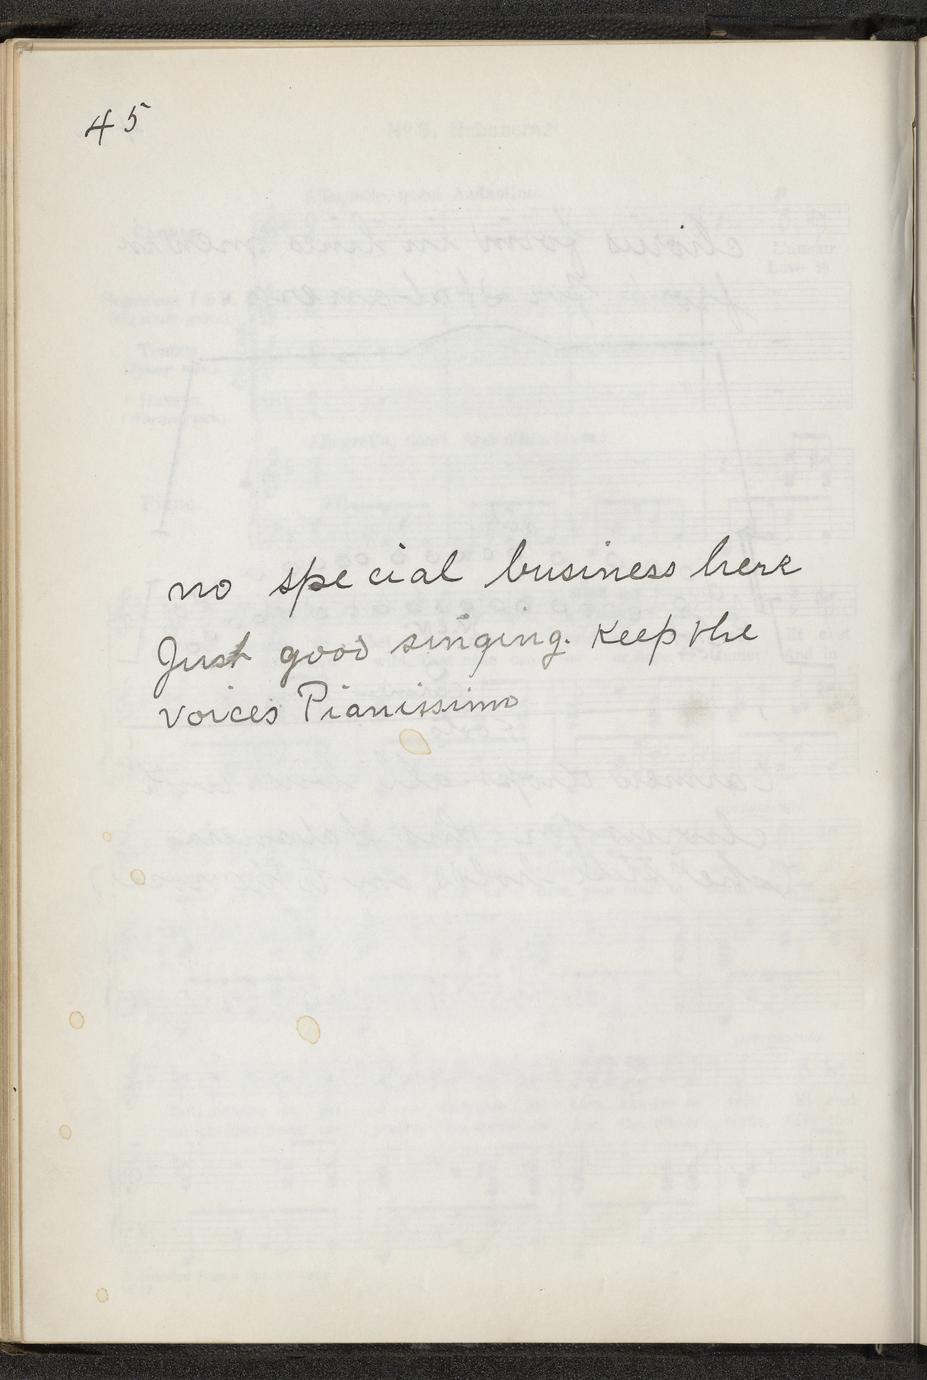 45
no special business here
Just good singing. Keep the
voices Pianissimo